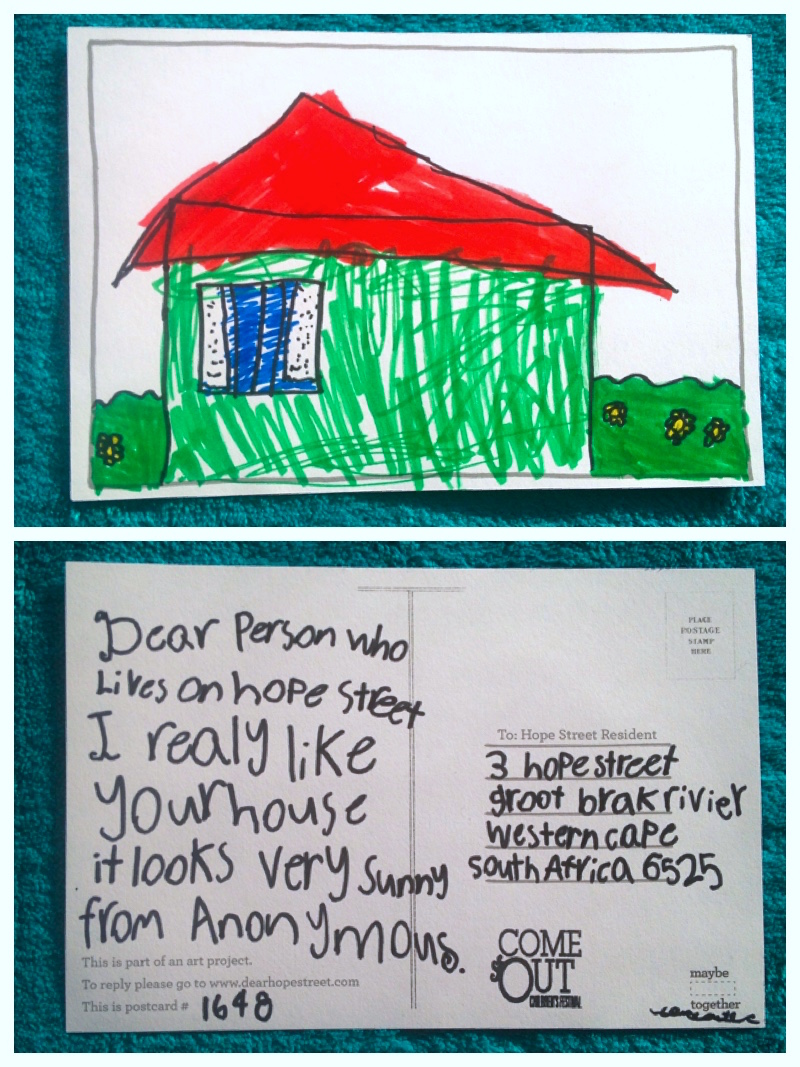 Dear Person who
Lives on hope street
I realy like
your house
it looks very sunny
from Anonymous.
This is part of an art project.
To reply please go to www.dearhopestreet.com
This is postcard # 1648
PLACE
POSTAGE
STAMP
HERE
To: Hope Street Resident
3 hope street
groot brak rivier
western cape
south Africa 6525
COME
OUT
CHILDREN'S FESTIVAL
maybe
together